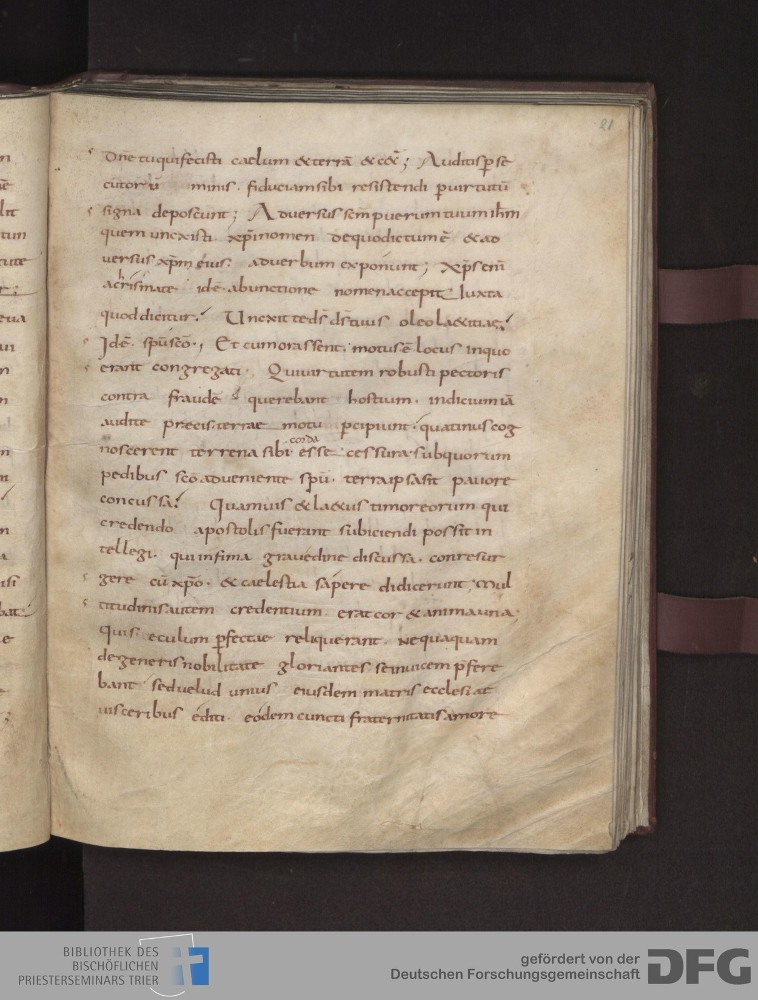 21
Dn̄e tu qui fecisti caelum & terrā & cet̄; Auditis p̲se
cūtorū minis. fiduciam sibi resistendi p̲ uirtutū
signa deposcunt; Aduersus sc̄m puerum tuum ih̄m
quem unxisti xp̄i nomen de quo dictum ē & ad
uersus xp̄m eius. aduerbum exponunt; Xp̄s em̄
a chrismate idē. ab unctione nomen accepit Iuxta
quod dicitur. Unexit te ds̄ ds̄ tuus oleo laetitiae.
Idē. spū sc̄o., Et cum orassent. motus ē locus in quo
erant congregati. Qui uirtutem robusti pectoris
contra fraudē querebant hostium. indicium iā
auditę precis. terrae motu p̲cipiunt. quatinus cog
noscerent terrena sibi corda esse cessura. sub quorum
pedibus sc̄o adueniente spū. terra ipsa sit pauore
concussa. Quamuis & laetus timor eorum qui
credendo apostolis fuerant subiciendi possit in
tellegi. qui infima grauedine discussa. conresur
gere cū xp̄o. & caelestia sapere didicerunt; Mul
titudinis autem credentium erat cor & anima una;
Qui seculum p̲fectae reliquerant. Nequaquam
de generis nobilitate gloriantes se inuicem p̲fere
bant sed uelud unius eiusdem matris ecclesiae
uisceribus editi. eodem cuncti fraternitatis amore
BIBLIOTHEK DES
BISCHÖFLICHEN
PRIESTERSEMINARS TRIER
gefördert von der
Deutschen Forschungsgemeinschaft
DFG